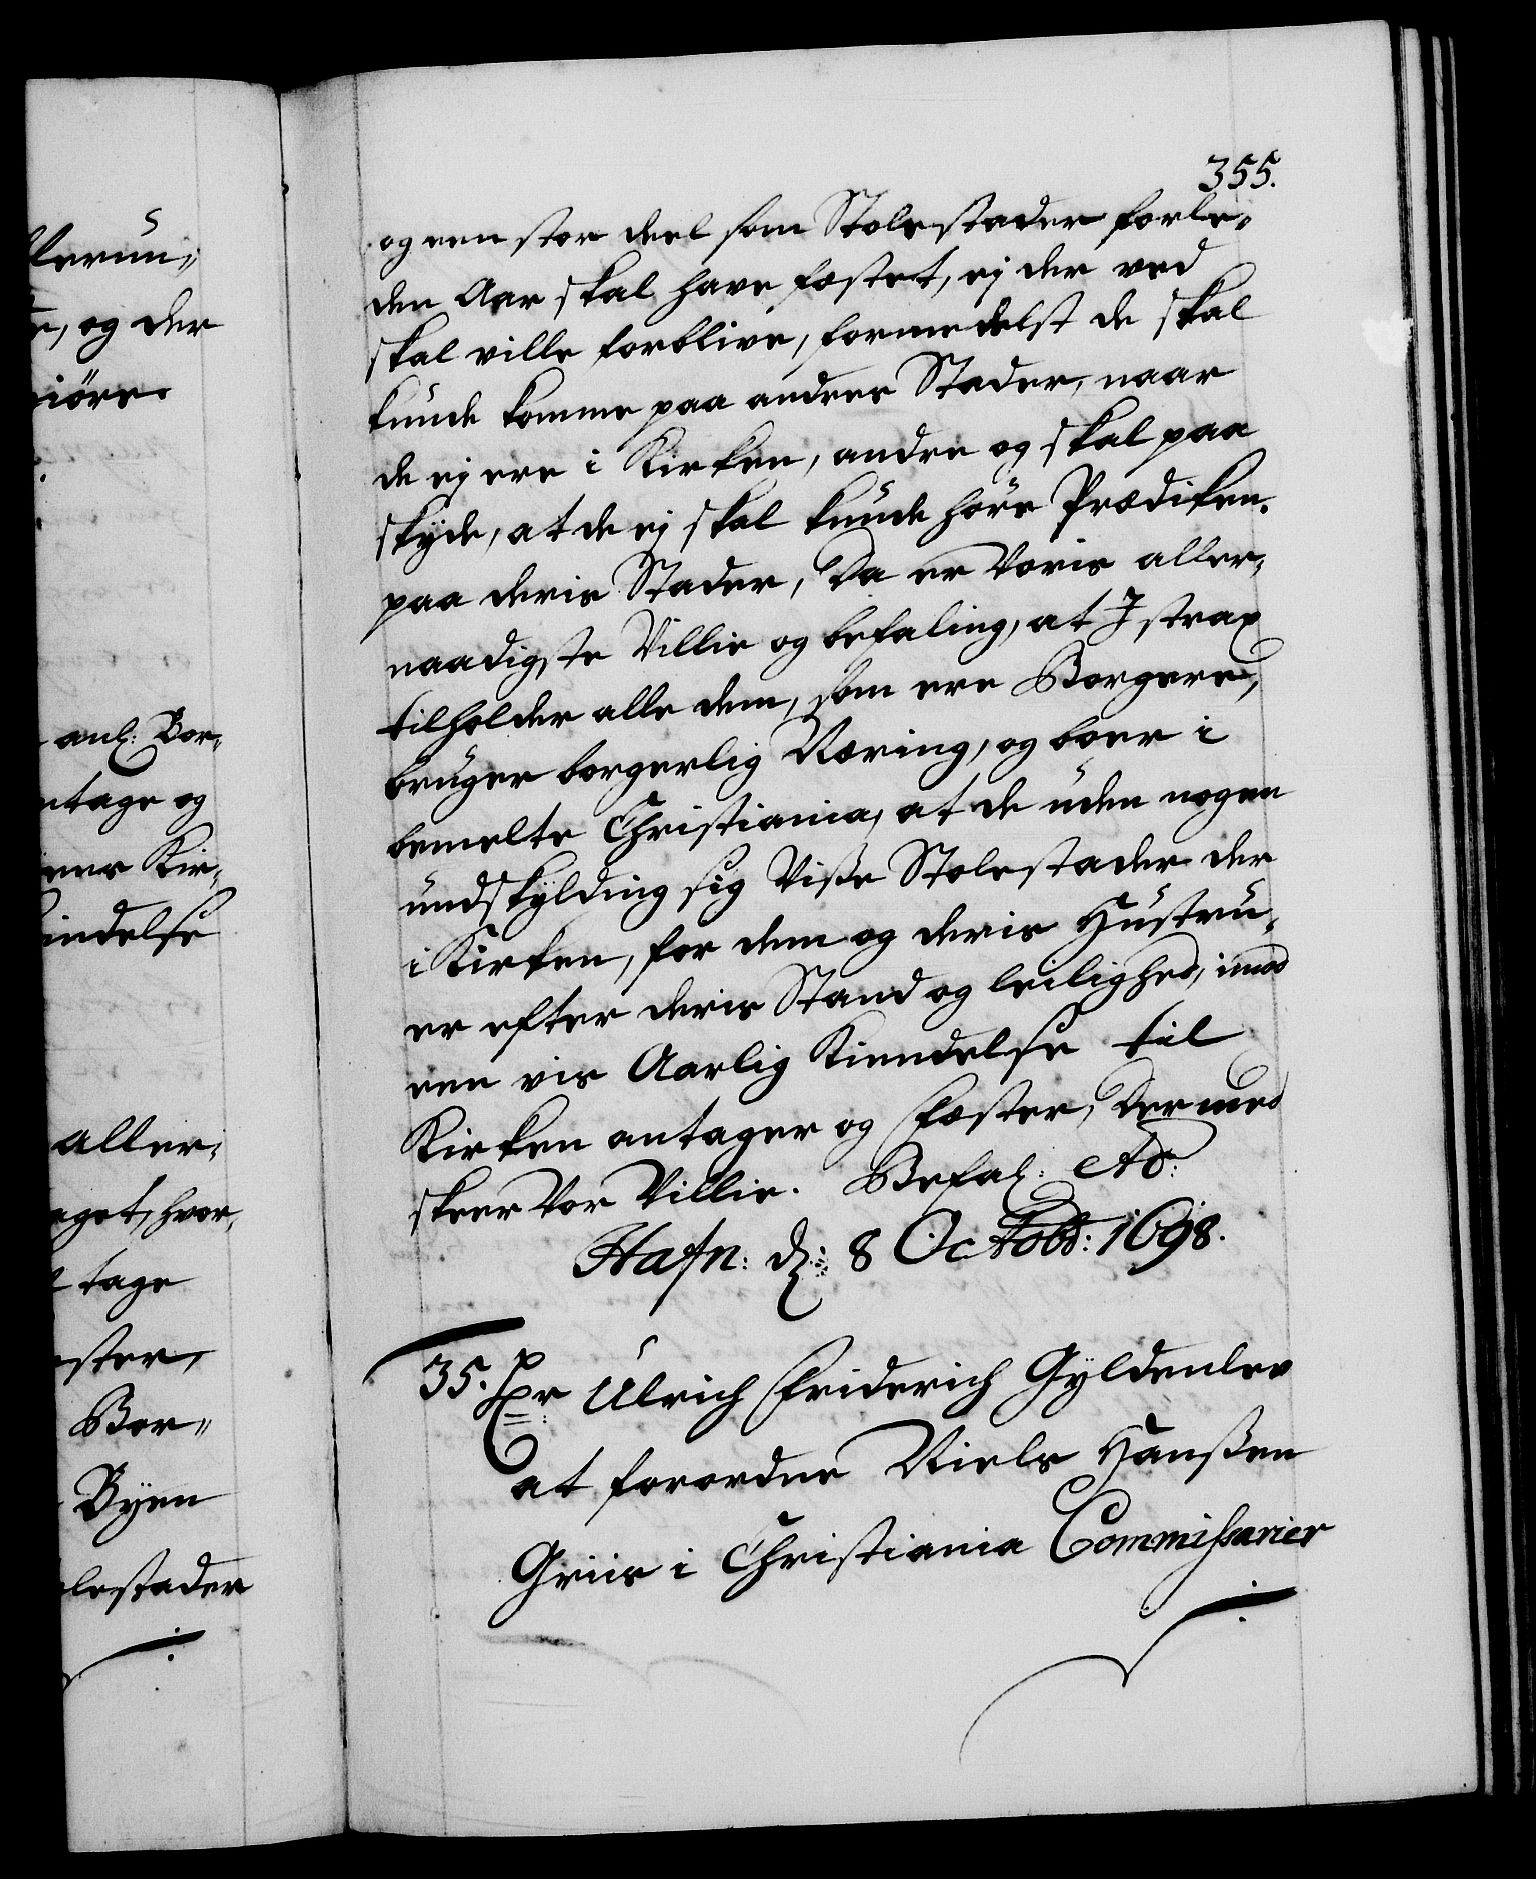 355.
og een stor deel som Stolestader forle-
den Aar skal have fæstet, ej der ved
skal ville forblive, formedelst de skal
kunde komme paa andres Stader, naar
de ej ere i Kirken, andre og skal paa
skyde, at de ej skal kunde høre Prædiken.
paa deris Stader, Da er Voris aller-
naadigste Villie og befaling, at I strax
tilholder alle dem, som ere Borgere,
bruger borgerlig Næring, og boer i
bemelte Christiania, at de uden nogen
undskylding sig Visse Stolestader der
i Kirken, for dem og deris Hustru-
er efter deris Stand og leilighed, imod
een vis Aarlig Kiendelse til
Kirken antager og fæster, Dermed
skeer Vor Villie. Befal: etc:
Hafn: d: 8 Octobr: 1698.
35. Hr Ulrich Friderich Gyldenlev
at forordne Niels Hanßen
Griis i Christiania Commissarier
llerun-
, og der
giøre
anl: Bor-
ntage og
Kir-
indelse
aller-
aget, hvor-
tage
ster,
Bor-
Byen
lestader